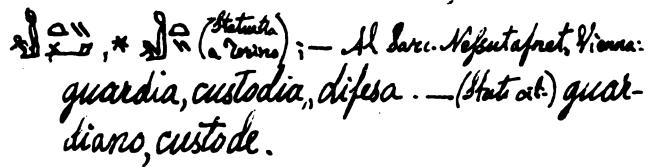 , * (Statuetta a Torino); — Al Sarc. Nessutafnet, Vienna:
guardia, custodia, difesa. — (Stat. cit.) guar-
diano, custode.